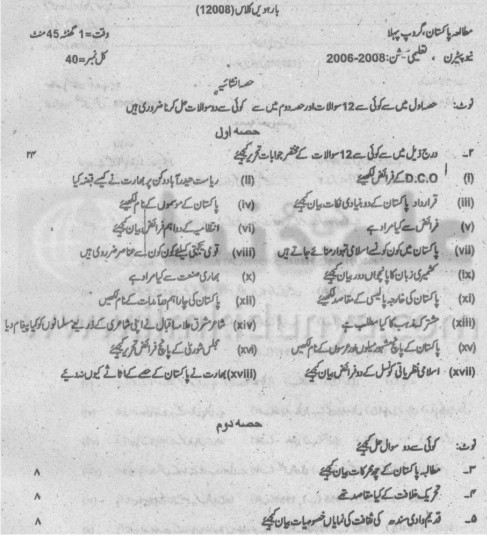 بارہویں کلاس (12008)
مطالعہ پاکستان، گروپ پہلا وقت=1 گھنٹہ 45 منٹ
نیو پیٹرن، تعلیمی سیشن: 2006-2008 کل نمبر=40
حصہ انشائیہ
نوٹ: حصہ اول میں سے کوئی سے 12 سوالات اور حصہ دوم میں سے کوئی سے دو سوالات حل کرنا ضروری ہیں
حصہ اول
۲۔ درج ذیل میں سے کوئی سے 12 سوالات کے مختصر جوابات تحریر کیجئے ۲۴
(i) D.C.O کے فرائض لکھئے (ii) ریاست حیدرآباد دکن پر بھارت نے کیسے قبضہ کیا
(iii) قرارداد پاکستان کے دو بنیادی نکات بیان کیجئے (iv) پاکستان کے موسموں کے نام لکھئے
(v) فرائض سے کیا مراد ہے (vi) انتظامیہ کے دو اہم فرائض بیان کیجئے
(vii) پاکستان میں کون کونسے اسلامی تہوار منائے جاتے ہیں (viii) قومی یکجہتی کیلئے کون کون سے عناصر ضروری ہیں
(ix) کشمیری زبان کا پانچواں دور بیان کیجئے (x) بھاری صنعت سے کیا مراد ہے
(xi) پاکستان کی خارجہ پالیسی کے مقاصد لکھئے (xii) پاکستان کی چار اہم درآمدات کے نام لکھیں
(xiii) مشترکہ مذہب کا کیا مطلب ہے (xiv) شاعر مشرق علامہ اقبال نے اپنی شاعری کے ذریعے مسلمانوں کو کیا پیغام دیا
(xv) پاکستان کے پانچ مشہور میلوں اور عرسوں کے نام لکھیں (xvi) مجلس شوریٰ کے پانچ فرائض تحریر کیجئے
(xvii) اسلامی نظریاتی کونسل کے دو فرائض بیان کیجئے (xviii) بھارت نے پاکستان کے حصے کے اثاثے کیوں نہ دیئے
حصہ دوم
نوٹ: کوئی سے دو سوال حل کیجئے
۳۔ مطالبہ پاکستان کے چھ محرکات بیان کیجئے ۸
۴۔ تحریک خلافت کے کیا مقاصد تھے ۸
۵۔ قدیم وادی سندھ کی ثقافت کی نمایاں خصوصیات بیان کیجئے ۸